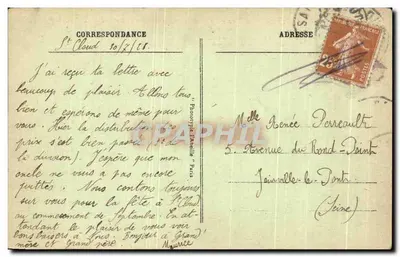 CORRESPONDANCE
ADRESSE
St Claud 20/8/28
J'ai reçu ta lettre avec
beaucoup de plaisir Allons tous
bien et espérons de même pour
vous. Hier la distribution
prix s'est bien passée
la division). J'espère que mon
oncle ne vous a pas encore
quittés. Nous contons toujours
sur vous pour la fête à St Claud
au commencement de Septembre. En at-
tendant le plaisir de vous voir
bons baisers à tous. Bonjour à Grand
mère et Grand père
Maurice
Melle Renée Perreault
5. Avenue du Rond-Point
Joinville-le-Pont
(Seine)
CARTORUM